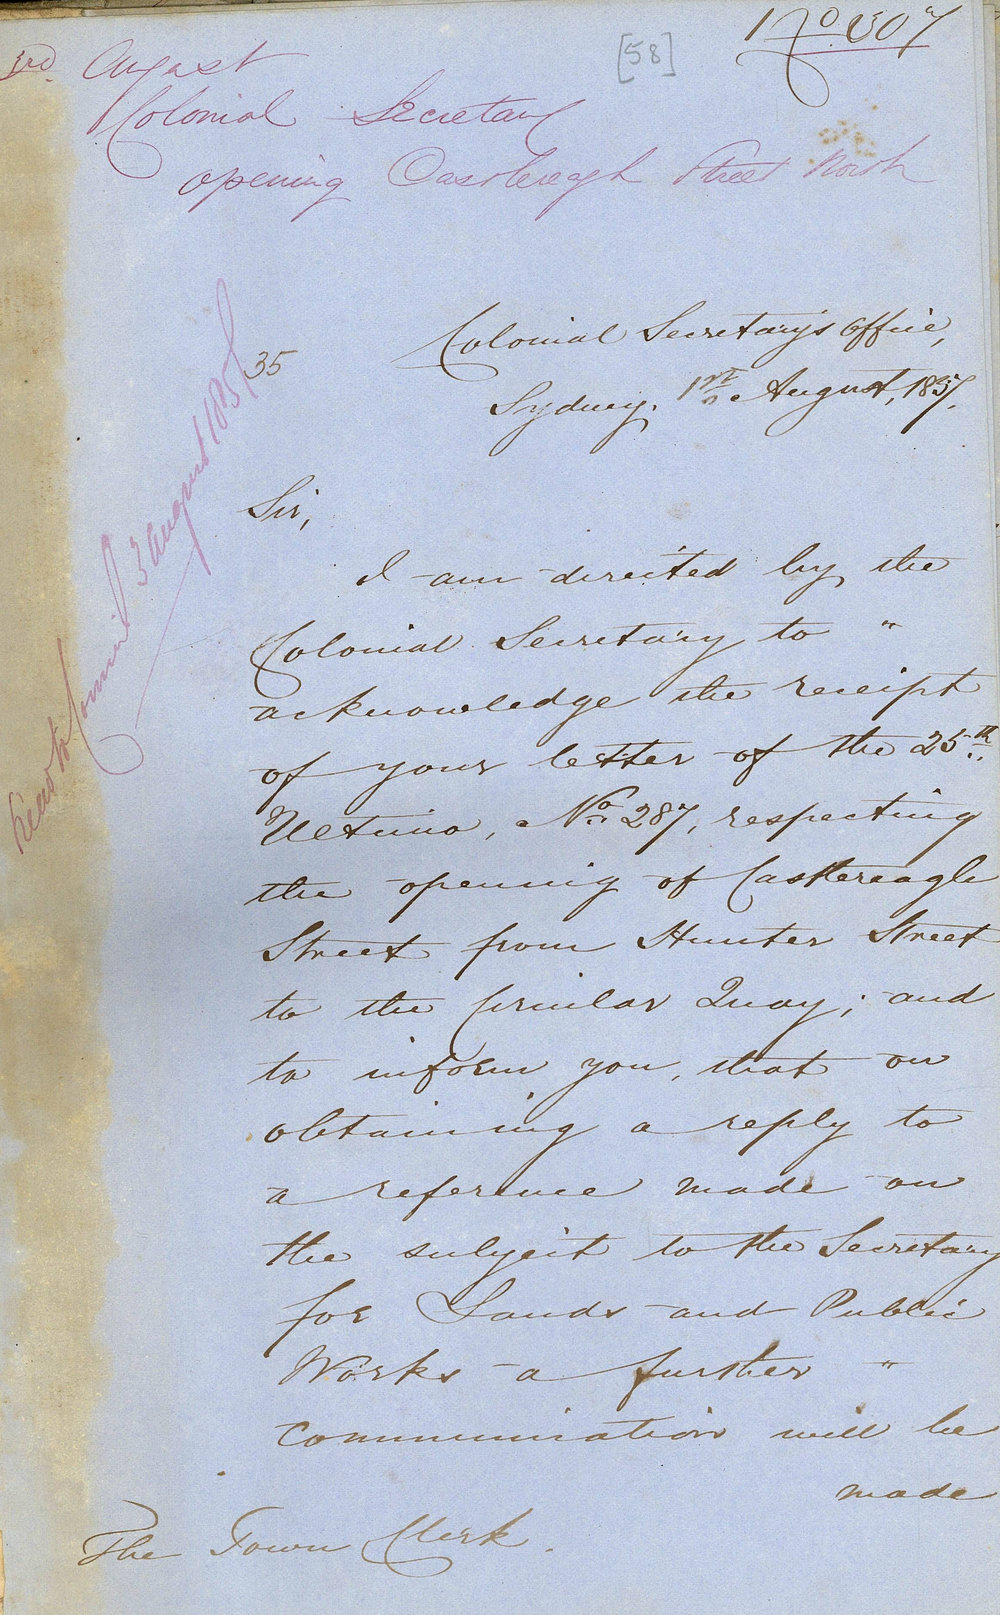 No 607
[58]
3rd. August
Colonial Secretary
opening Castlereagh Street North
Colonial Secretary's Office,
35
Sydney. 1st August, 1857.
Read to Council 3 August 1857
Sir,
I am directed by the
Colonial Secretary to "
acknowledge the receipt
of your letter of the 25th.
Ultimo, No 287, respecting
the opening of Castlereagh
Street from Hunter Street
to the Circular Quay; and
to inform you, that on
obtaining a reply to
a reference made on
the subject to the Secretary
for Lands and Public
Works a further "
communication will be
made
The Town Clerk.